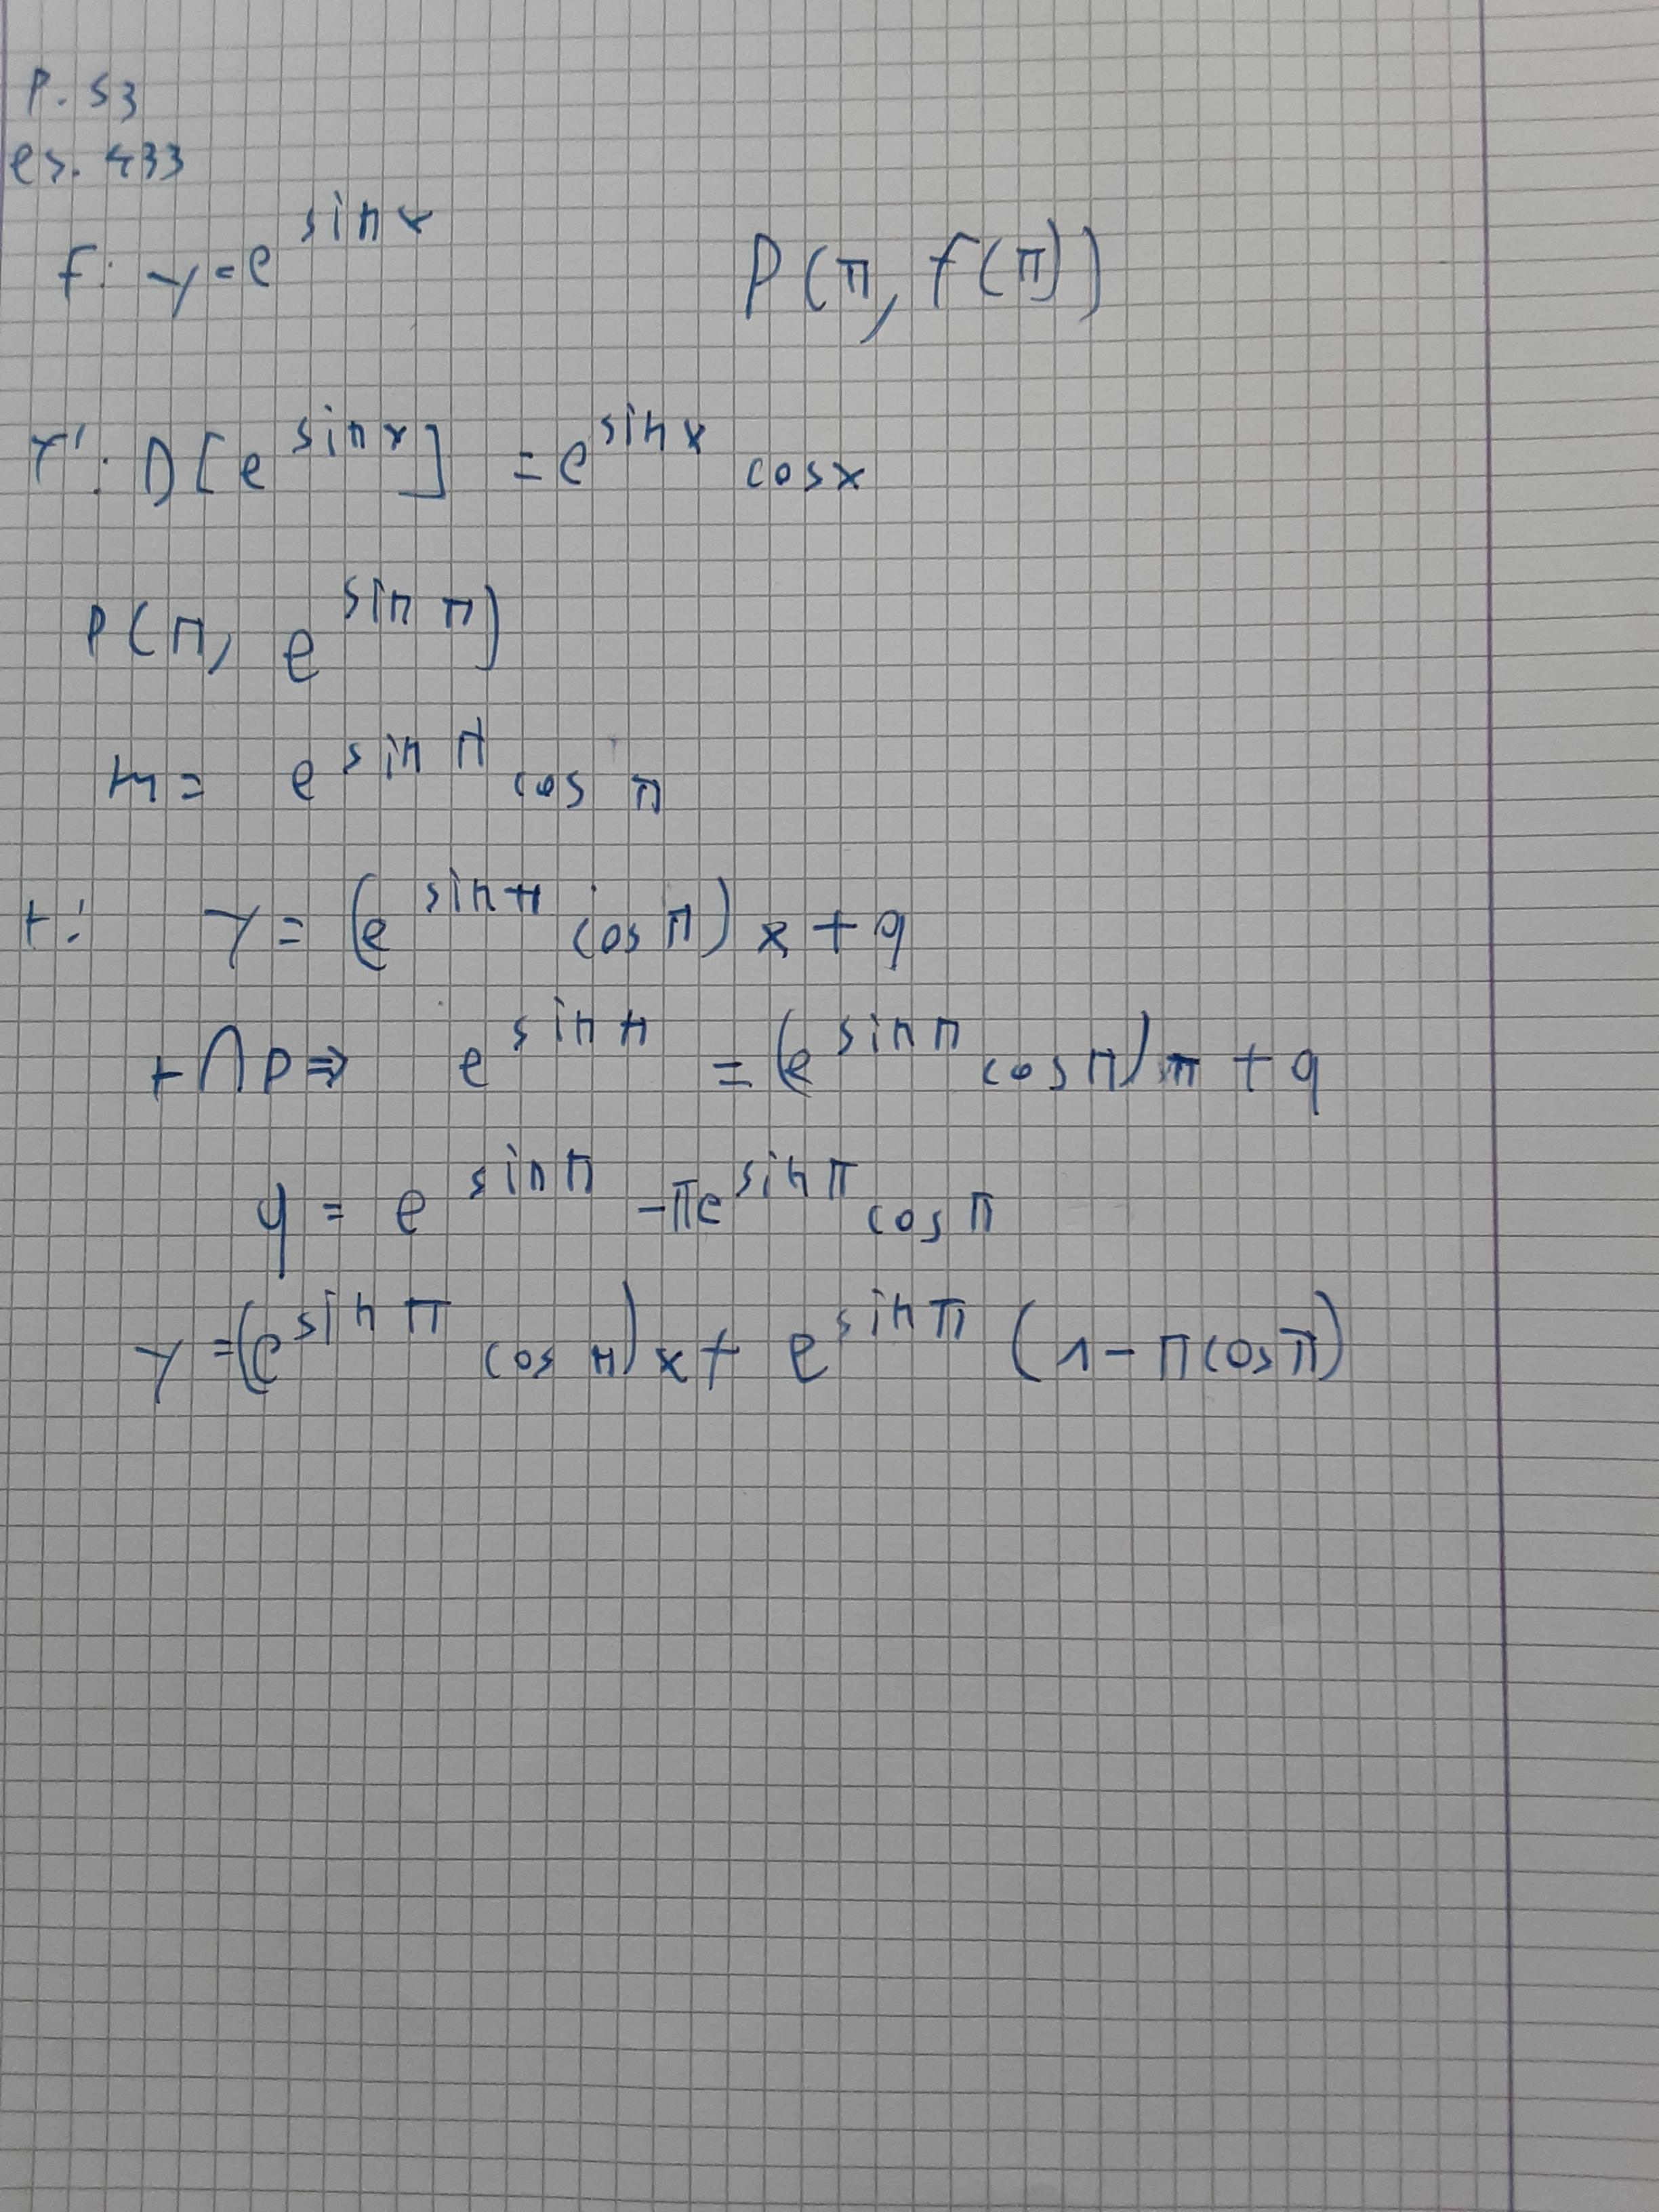 P. 53
es. 433
f: y = e^{sin x} P(π, f(π))
Y': D[e^{sin x}] = e^{sin x} cos x
P(π, e^{sin π})
m = e^{sin π} cos π
t: y = (e^{sin π} cos π) x + q
t ∩ P ⇒ e^{sin π} = (e^{sin π} cos π) π + q
q = e^{sin π} - π e^{sin π} cos π
y = (e^{sin π} cos π) x + e^{sin π} (1 - π cos π)